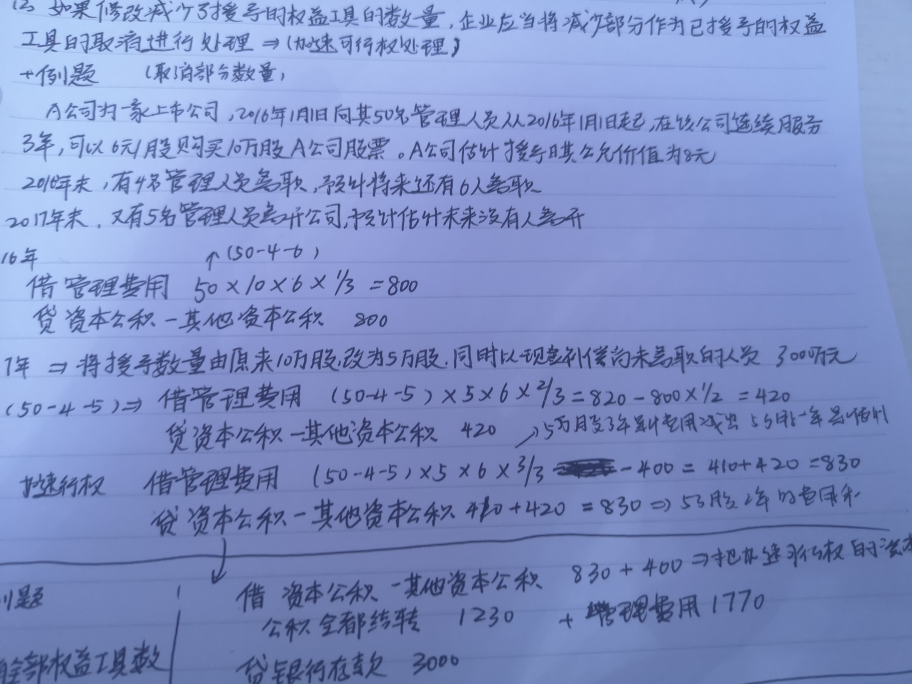 (2) 如果修改减少了授予的权益工具的数量，企业应当将减少部分作为已授予的权益
工具的取消进行处理 ⇒ (加速可行权处理)
+例题 (取消部分数量)
A公司为一家上市公司，2016年1月1日向其50名管理人员从2016年1月1日起，在该公司连续服务
3年，可以6元1股购买10万股A公司股票。A公司估计授予日其公允价值为8元
2016年末，有4名管理人员离职，预计将来还有6人离职
2017年末，又有5名管理人员离开公司，预计估计未来没有人离开
16年 ↑(50-4-6)
借 管理费用 50×10×6×1/3 =800
贷 资本公积－其他资本公积 800
17年 ⇒ 将授予数量由原来10万股，改为5万股，同时以现金补偿尚未离职的人员 3000万元
(50-4-5)⇒ 借管理费用 (50-4-5)×5×6×2/3=820-800×1/2 =420
贷资本公积－其他资本公积 420 → 5万股
加速行权 借管理费用 (50-4-5)×5×6×3/3 -400 = 410+420 =830
贷 资本公积－其他资本公积 410+420 =830 ⇒ 5万股 年的费用
例题 借 资本公积－其他资本公积 830+400 ⇒把加速行权的资本
公积全部结转 1230 + 管理费用1770
全部权益工具数 贷银行存款 3000